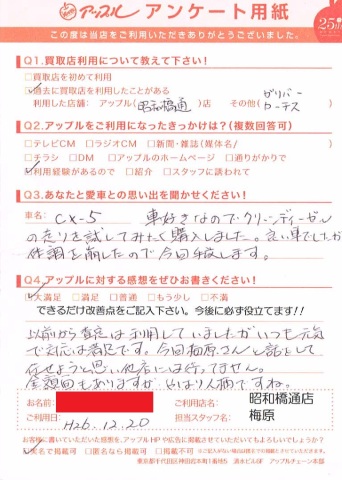 アップル アンケート用紙
25th
この度は当店をご利用いただきありがとうございました。
Q1.買取店利用について教えて下さい!
□買取店を初めて利用
□過去に買取店を利用したことがある
利用した店舗: アップル(昭和橋通)店 その他(ガリバー
Q2.アップルをご利用になったきっかけは?(複数回答可)
□テレビCM □ラジオCM □新聞・雑誌(媒体名/ )
□チラシ □DM □アップルのホームページ □通りがかりで
□利用経験があるので □紹介 □スタッフに誘われて
Q3.あなたと愛車との思い出を聞かせください!
車名: CX-5 車好きなのでクリーンディーゼル
の走りを試してみたく購入しました。良い車でしたが
体調を崩したので今回手放します。
Q4.アップルに対する感想をぜひお書きください!
□大満足 □満足 □普通 □もう少し □不満
できるだけ改善点をご記入下さい。今後に必ず役立てます!!
以前から査定は利用していましたがいつも元気
で対応は満足です。今回梅原さんと話をして
任せようと思い他店には行ってません。
金額面もありますが、やはり人柄ですね。
お名前:
ご利用日: H26.12.20
ご利用店名: 昭和橋通店
担当スタッフ名: 梅原
お客様に書いていただいた感想を、アップルHPや広告に掲載させていただいてもよろしいでしょうか?
□実名で掲載可 □匿名なら掲載可 □掲載不可
東京都千代田区神田岩本町1番地5 清水ビル8F アップルチェーン本部